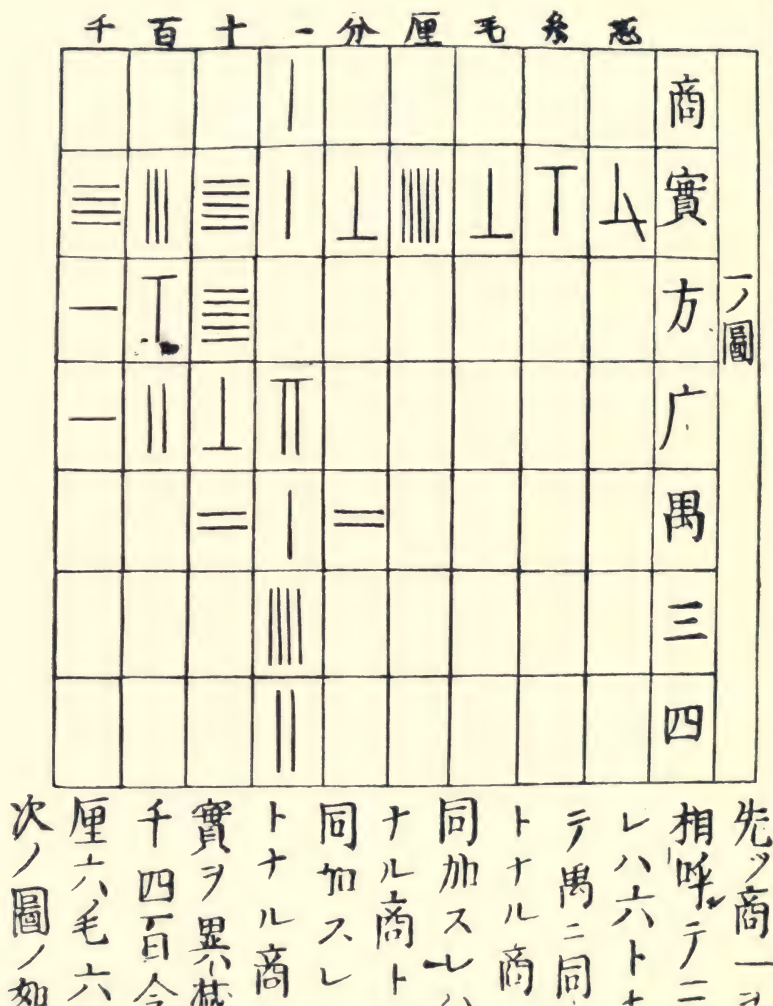 千百十一分厘毛糸忽
一ノ圖
商
實
方
广
禺
三
四
先ツ商一ヲ
相呼テ二
レハ六トナ
テ禺ニ同
トナル商
同加スレハ
ナル商ト
同加スレ
トナル商
實ヲ異減
千四百令
厘六毛六
次ノ圖ノ如